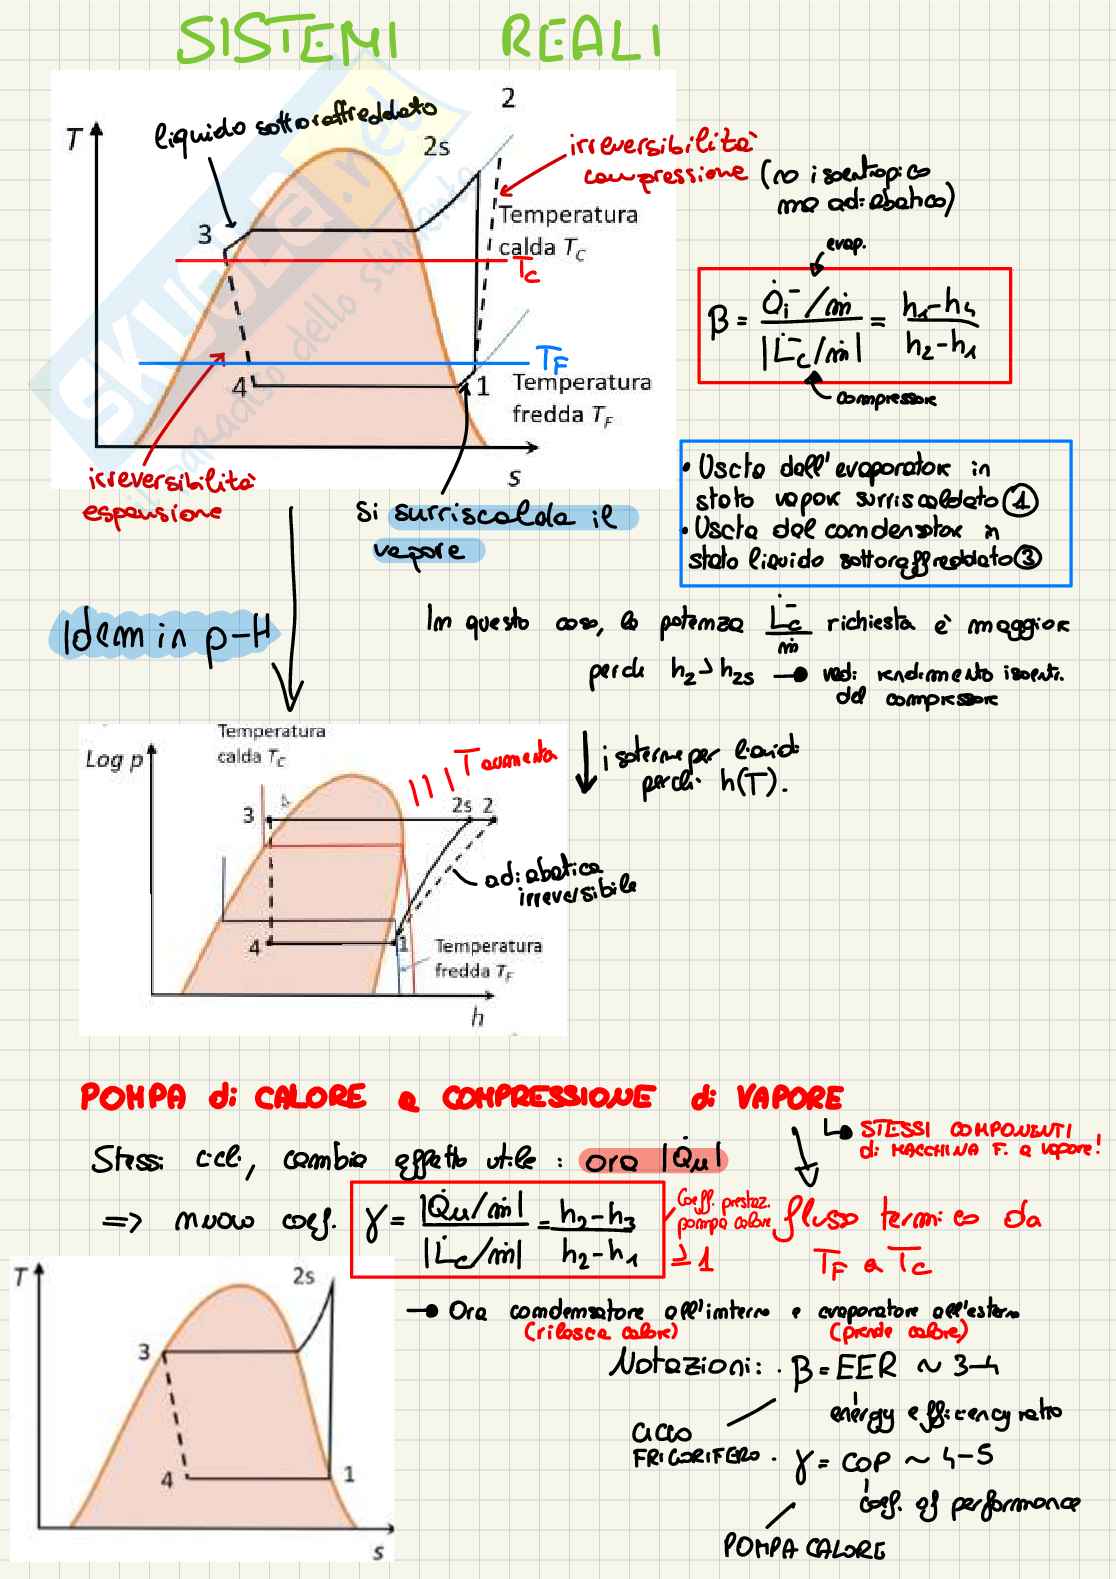 SISTEMI REALI
liquido sottoraffreddato
T
2
2s
irreversibilità
compressione (no isoentropico
ma adiabatico)
Temperatura
calda TC
3
TC
evap.
β = Q̇i⁻/ṁ / |L̇c⁻/ṁ| = h1-h4 / h2-h1
compressore
TF
4
1
Temperatura
fredda TF
s
irreversibilità
espansione
Si surriscalda il
vapore
• Uscita dall'evaporatore in
stato vapor surriscaldato ①
• Uscita dal condensatore in
stato liquido sottoraffreddato ③
Idem in p-H
In questo caso, la potenza L̇c⁻/ṁ richiesta è maggior
perché h2 > h2s → vedi rendimento isoentr.
del compressore
Temperatura
calda TC
Log p
T aumenta
isoterme per liquidi
perché h(T).
3
4
2s 2
adiabatica
irreversibile
4
1
Temperatura
fredda TF
h
POMPA di CALORE a COMPRESSIONE di VAPORE
↳ STESSI COMPONENTI
di MACCHINA F. a vapore!
Stessi cicli, cambia effetto utile : ora |Q̇u|
=> nuovo coef. γ = |Q̇u/ṁ| / |L̇c/ṁ| = h2-h3 / h2-h1
Coeff. prestaz.
pompa calore
≥ 1
flusso termico da
TF a TC
T
2s
3
4
1
s
→ Ora condensatore all'interno e evaporatore all'esterno
(rilascia calore) (prende calore)
Notazioni: · β = EER ~ 3-4
energy efficiency ratio
CICLO
FRIGORIFERO
· γ = COP ~ 4-5
coef. of performance
POMPA CALORE